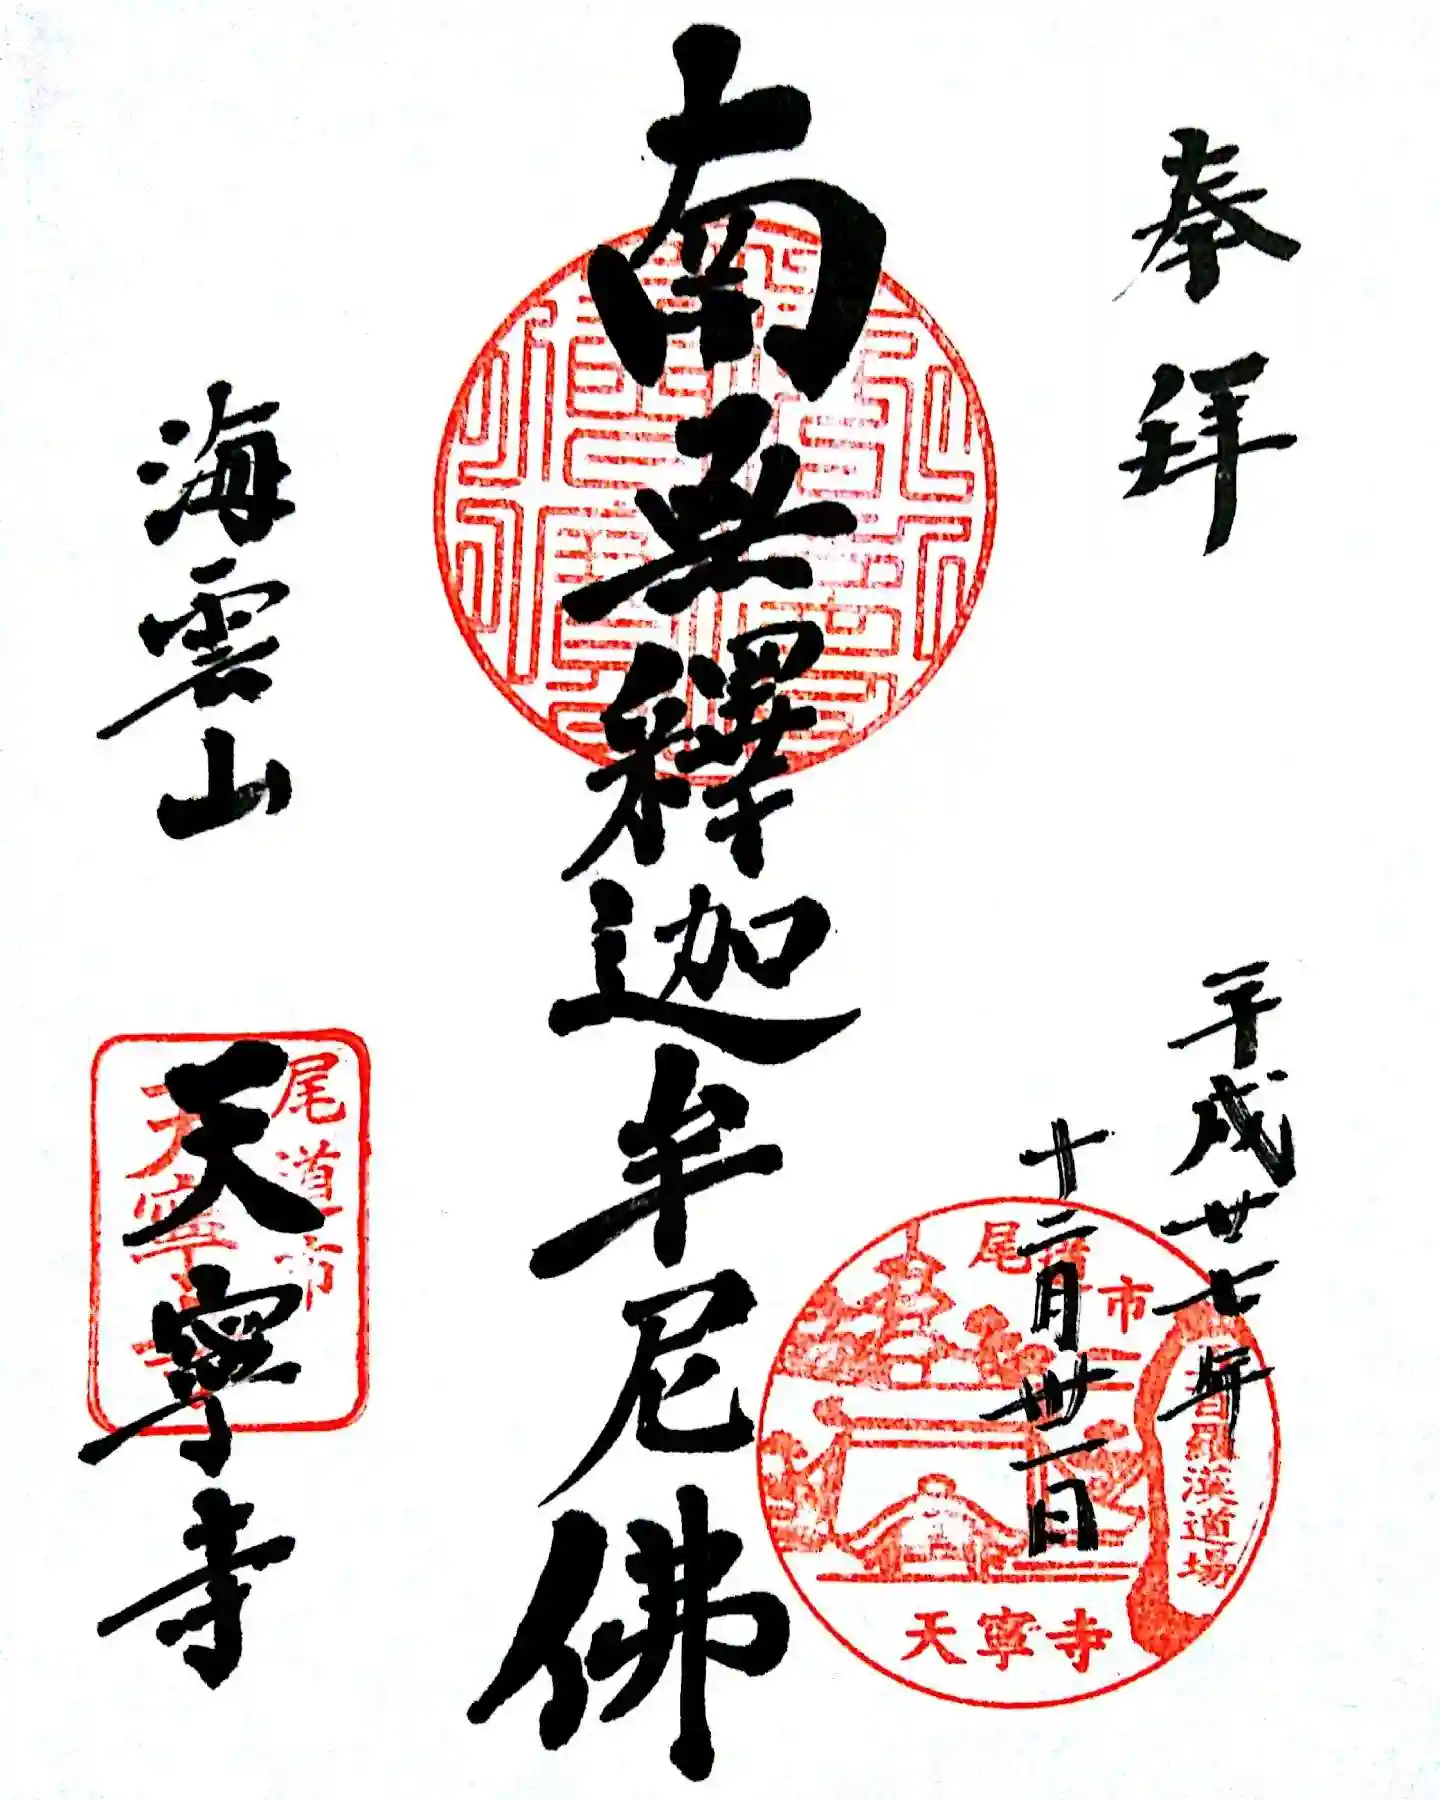 奉拝
平成廿七年
十二月卅一日
南無釋迦牟尼佛
海雲山
天寧寺
尾道市
天寧寺
尾道市
羅漢道場
天寧寺